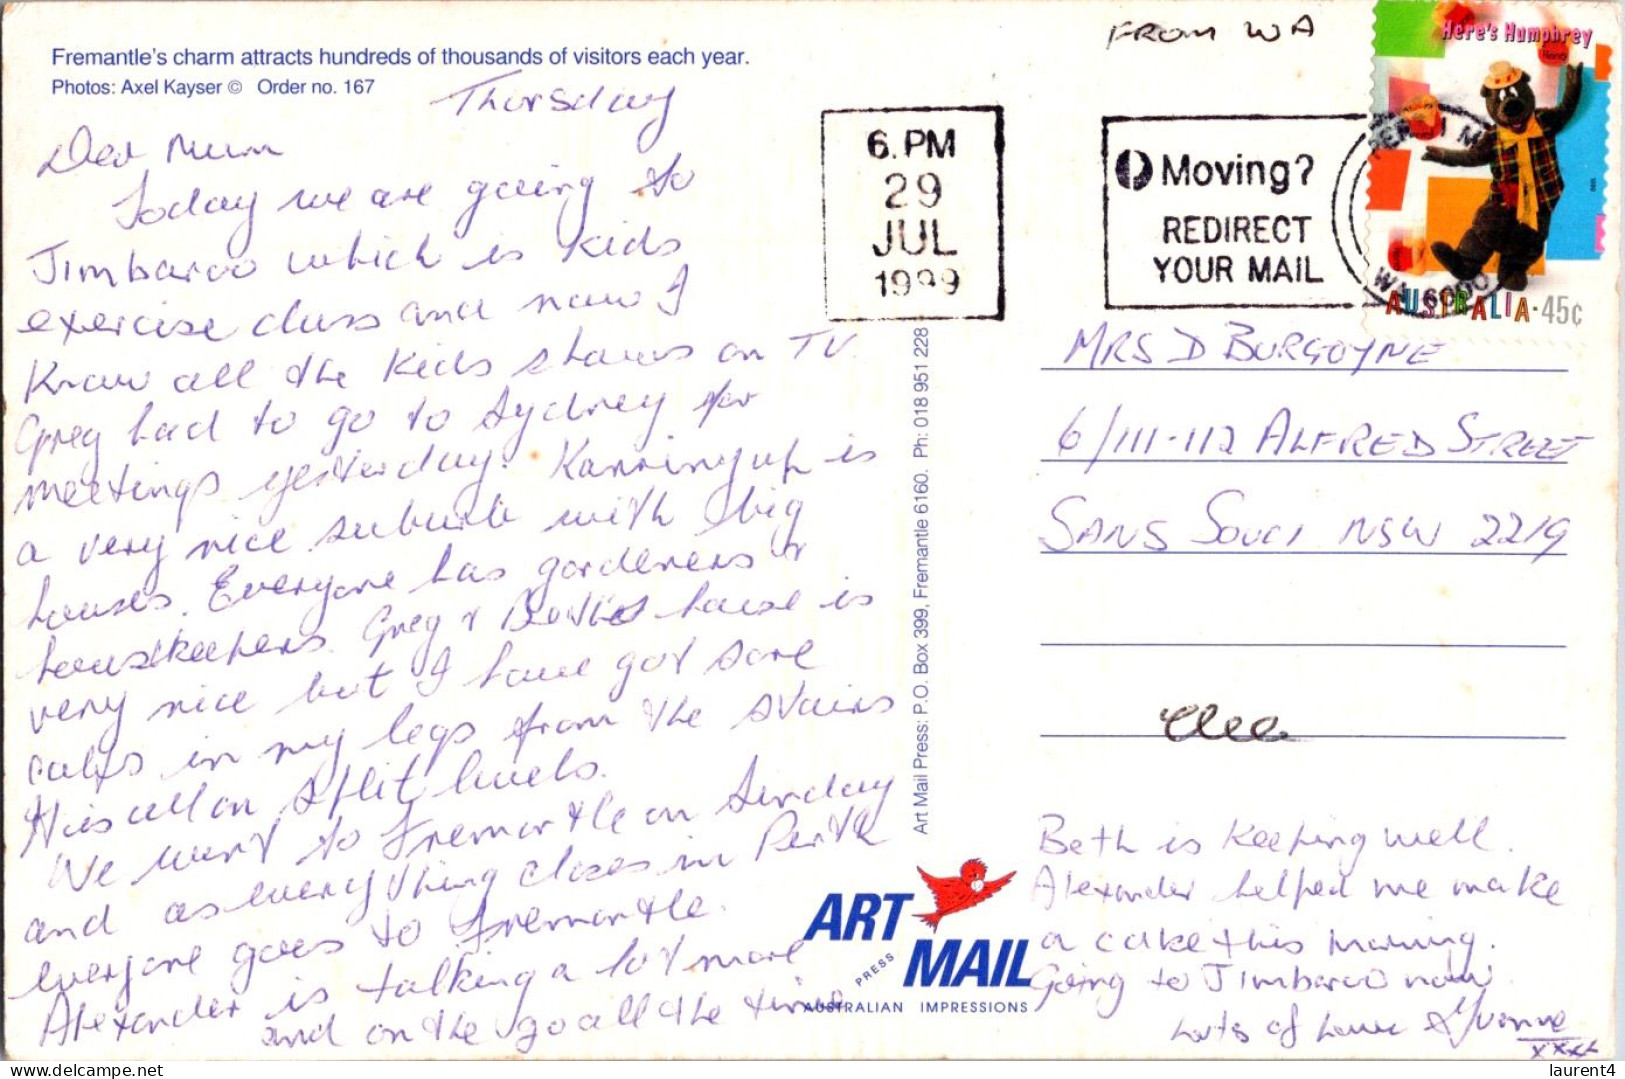 Fremantle's charm attracts hundreds of thousands of visitors each year.
Photos: Axel Kayser © Order no. 167
Thursday
Dear Mum
Today we are going to
Jimbaroo which is kids
exercise class and now I
Know all the kids shows on TV.
Greg had to go to Sydney for
meetings yesterday. Karrinyup is
a very nice suburb with big
houses. Everyone has gardeners &
housekeepers. Greg & Beth's house is
very nice but I have got sore
calfs in my legs from the stairs
It is all on split levels.
We went to Fremantle on Sunday
and as everything closes in Perth
everyone goes to Fremantle.
Alexander is talking a lot more
and on the go all the time
6. PM
29
JUL
1999
FROM WA
Moving?
REDIRECT
YOUR MAIL
PERTH M
WA 6000
Here's Humphrey
AUSTRALIA·45c
MRS D BURGOYNE
6/111-112 ALFRED STREET
SANS SOUCI NSW 2219
Art Mail Press: P.O. Box 399, Fremantle 6160. Ph: 018 951 228
ART
PRESS
MAIL
AUSTRALIAN IMPRESSIONS
Beth is keeping well.
Alexander helped me make
a cake this morning.
Going to Jimbaroo now.
Lots of love Yvonne
xxxx
laurent4
delcampe.net